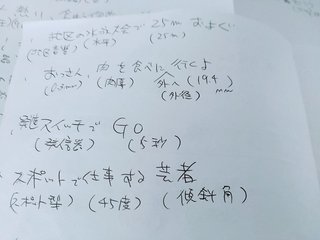 地区の水泳大会で 25m およぐ
(地区音響) (水平) (25m)
おっさん、肉を食べに 行くよ
(0.3mm) (肉厚) 外へ (19.4mm
(外径)
発進スイッチで GO
(発信器) (5秒)
スポットで仕事する 芸者
(スポット型) (45度) (傾斜角)